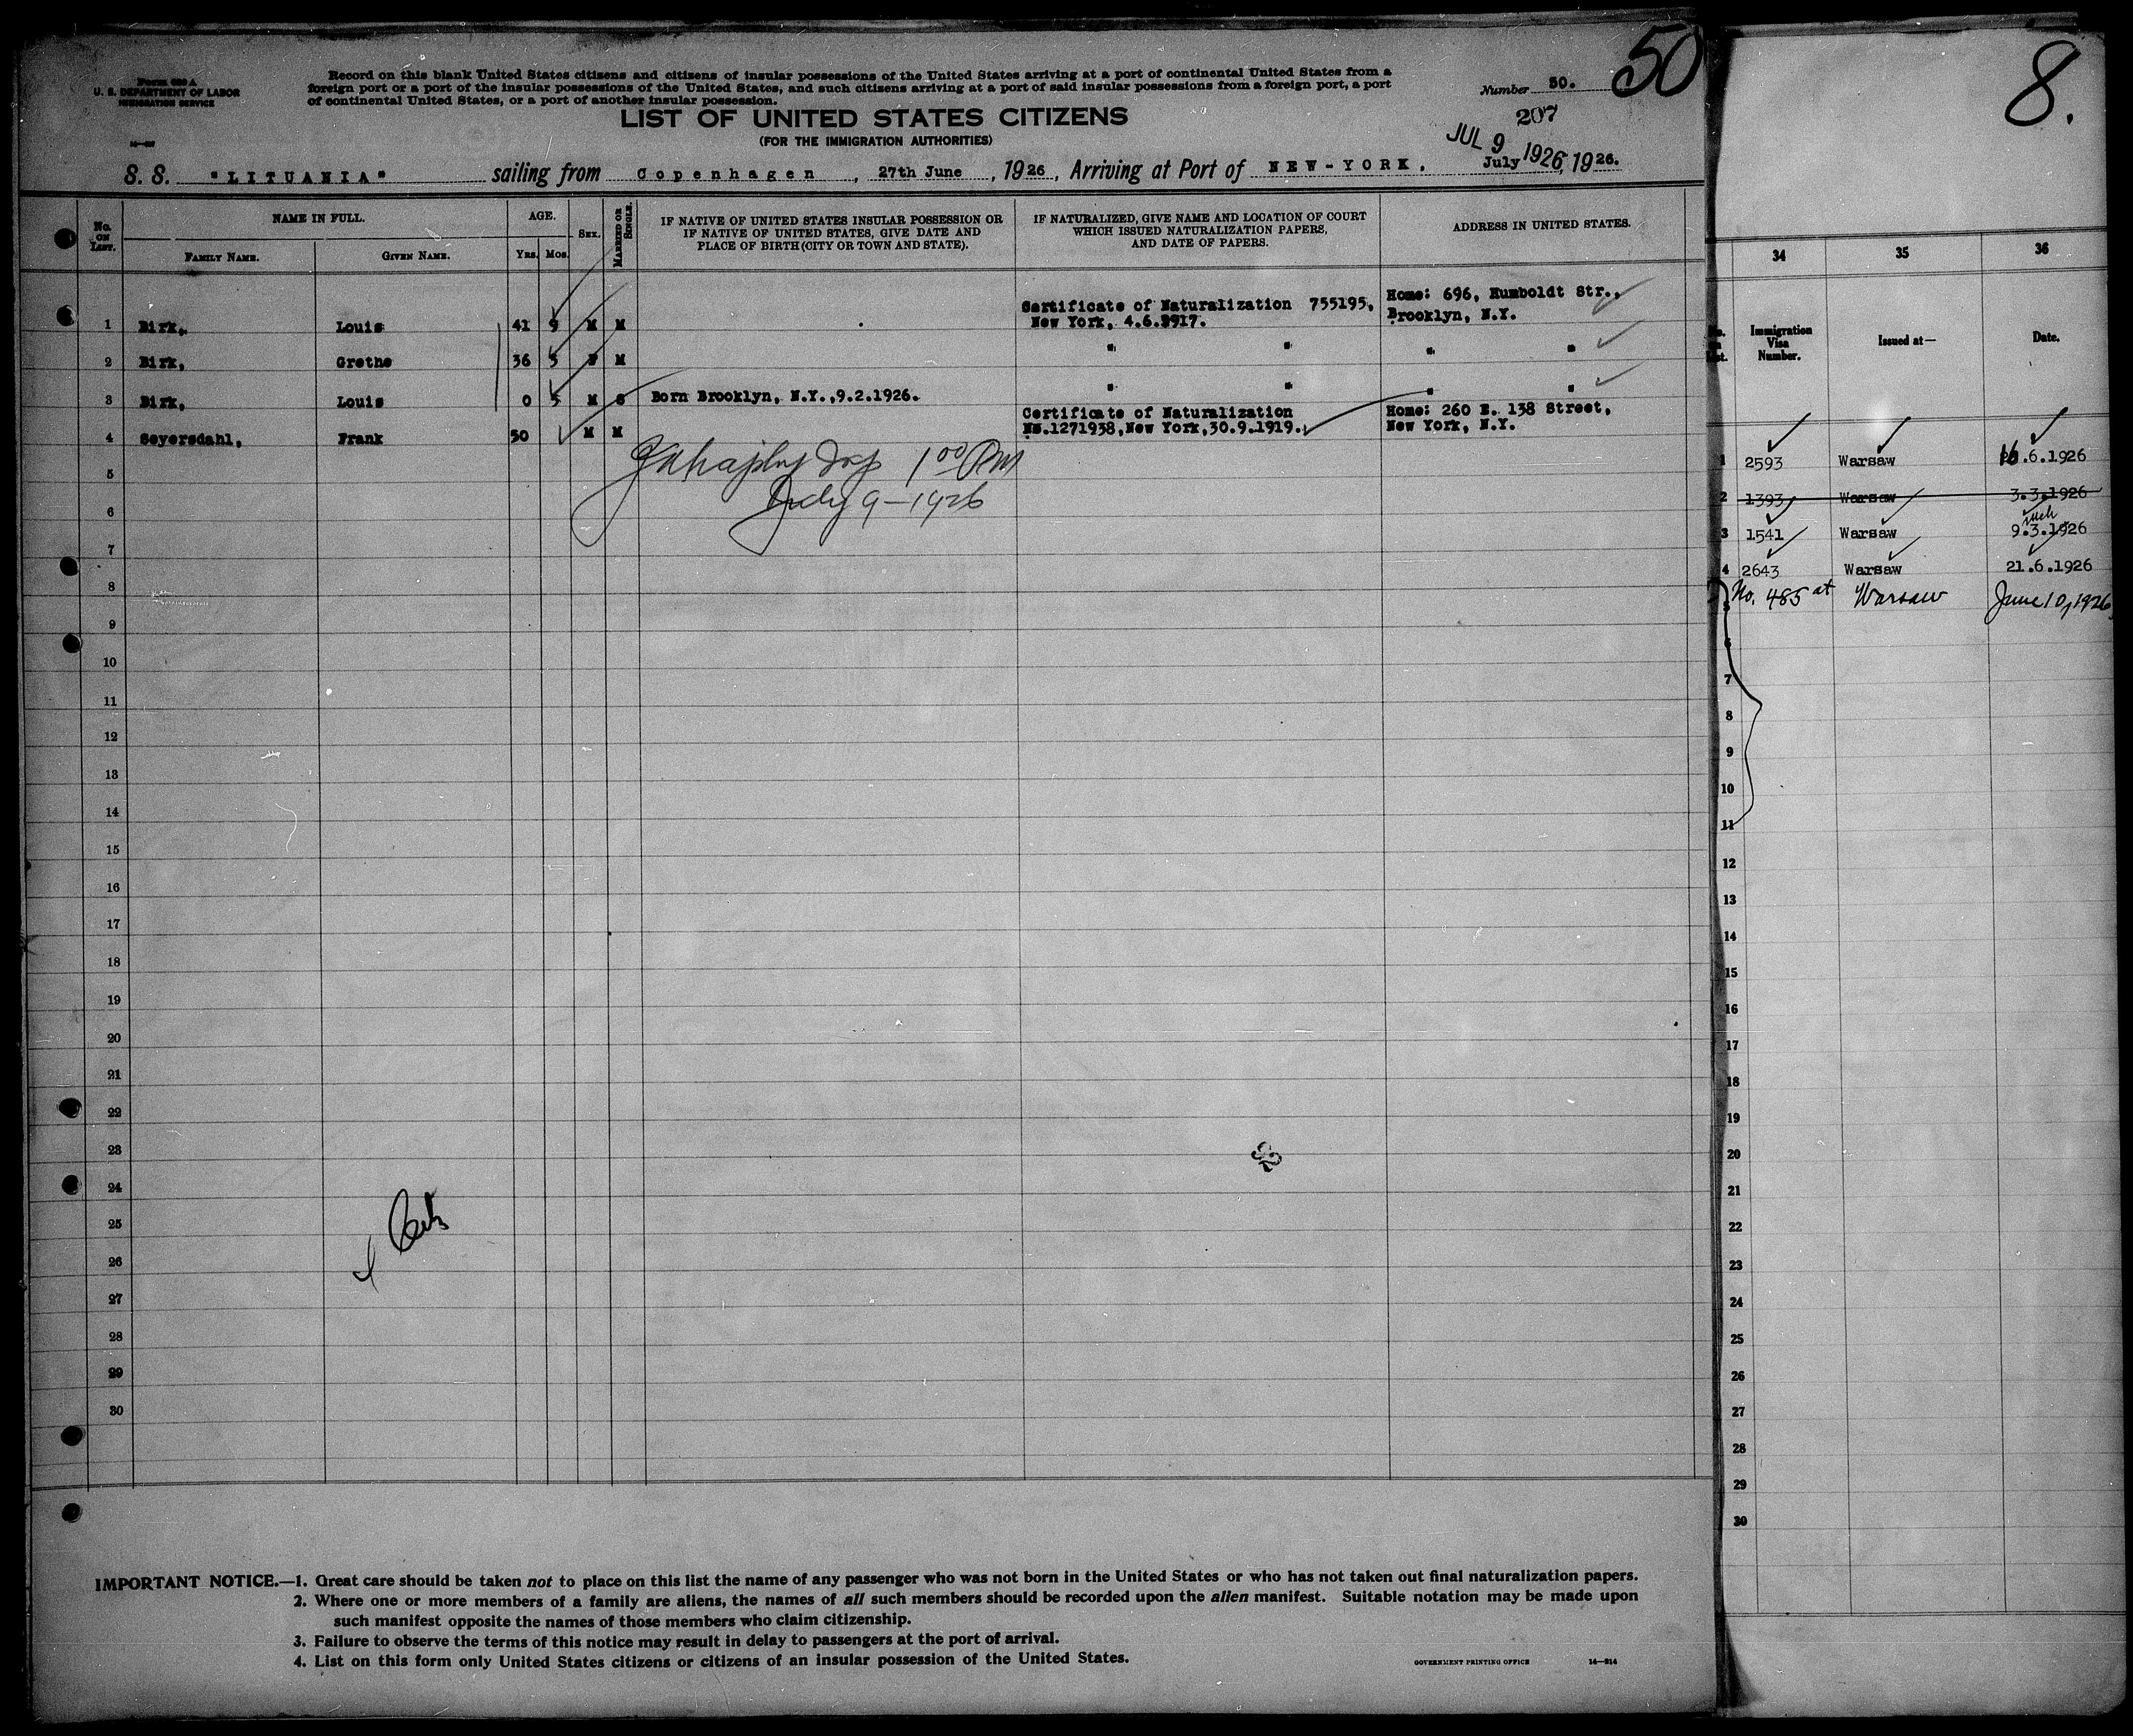 50
Form 630 A
U. S. DEPARTMENT OF LABOR
IMMIGRATION SERVICE
Record on this blank United States citizens and citizens of insular possessions of the United States arriving at a port of continental United States from a
foreign port or a port of the insular possessions of the United States, and such citizens arriving at a port of said insular possessions from a foreign port, a port
of continental United States, or a port of another insular possession.
Number 50.
LIST OF UNITED STATES CITIZENS
207
(FOR THE IMMIGRATION AUTHORITIES)
JUL 9 1926
S. S. "LITUANIA" sailing from Copenhagen, 27th June, 1926, Arriving at Port of NEW-YORK, July, 1926.
No. ON LIST.
NAME IN FULL.
FAMILY NAME.
GIVEN NAME.
AGE.
YRS. MOS.
SEX.
MARRIED OR SINGLE.
IF NATIVE OF UNITED STATES INSULAR POSSESSION OR
IF NATIVE OF UNITED STATES, GIVE DATE AND
PLACE OF BIRTH (CITY OR TOWN AND STATE).
IF NATURALIZED, GIVE NAME AND LOCATION OF COURT
WHICH ISSUED NATURALIZATION PAPERS,
AND DATE OF PAPERS.
ADDRESS IN UNITED STATES.
Certificate of Naturalization 755195, Home: 696, Humboldt Str.,
1 Birk, Louis 41 9 M M New York, 4.6.1917. Brooklyn, N.Y.
2 Birk, Grethe 36 3 F M " " " "
3 Birk, Louis 0 5 M S Born Brooklyn, N.Y.,9.2.1926. " " " "
Certificate of Naturalization Home: 260 E. 138 Street,
4 Seyersdahl, Frank 50 M M No.1271938,New York,30.9.1919. New York, N.Y.
1 00 PM
5
July 9 - 1926
6
7
8
9
10
11
12
13
14
15
16
17
18
19
20
21
22
23
24
25
26
27
28
29
30
IMPORTANT NOTICE.—1. Great care should be taken not to place on this list the name of any passenger who was not born in the United States or who has not taken out final naturalization papers.
2. Where one or more members of a family are aliens, the names of all such members should be recorded upon the alien manifest. Suitable notation may be made upon
such manifest opposite the names of those members who claim citizenship.
3. Failure to observe the terms of this notice may result in delay to passengers at the port of arrival.
4. List on this form only United States citizens or citizens of an insular possession of the United States.
GOVERNMENT PRINTING OFFICE 14—814
8.
34 35 36
Immigration
Visa
Number.
Issued at—
Date.
1 2593 Warsaw 16.6.1926
2 1393 Warsaw 3.3.1926
3 1541 Warsaw 9.3.1926
4 2643 Warsaw 21.6.1926
5 No. 485 at Warsaw June 10, 1926
6
7
8
9
10
11
12
13
14
15
16
17
18
19
20
21
22
23
24
25
26
27
28
29
30